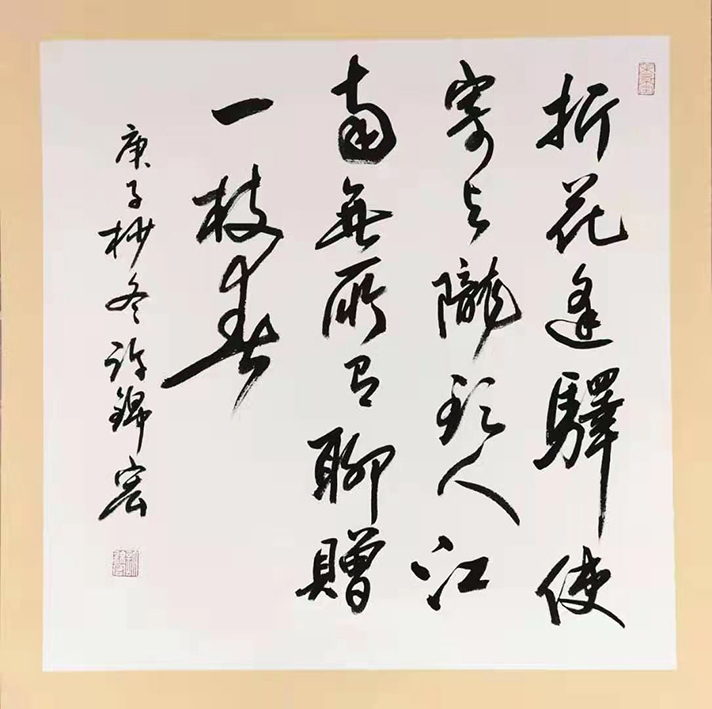 折花逢驛使
寄与隴頭人江
南無所有聊贈
一枝春
庚子杪冬許錦宏